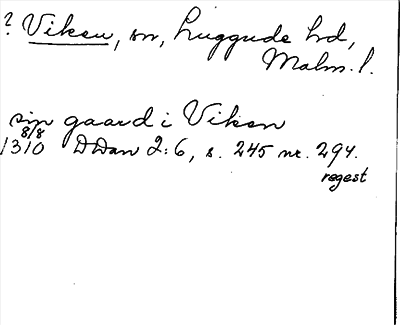 ? Viken, sn, Luggude hd,
Malm. l.
sin gaard i Viken
8/8
1310 DDan 2:6, s. 245 nr. 294.
regest